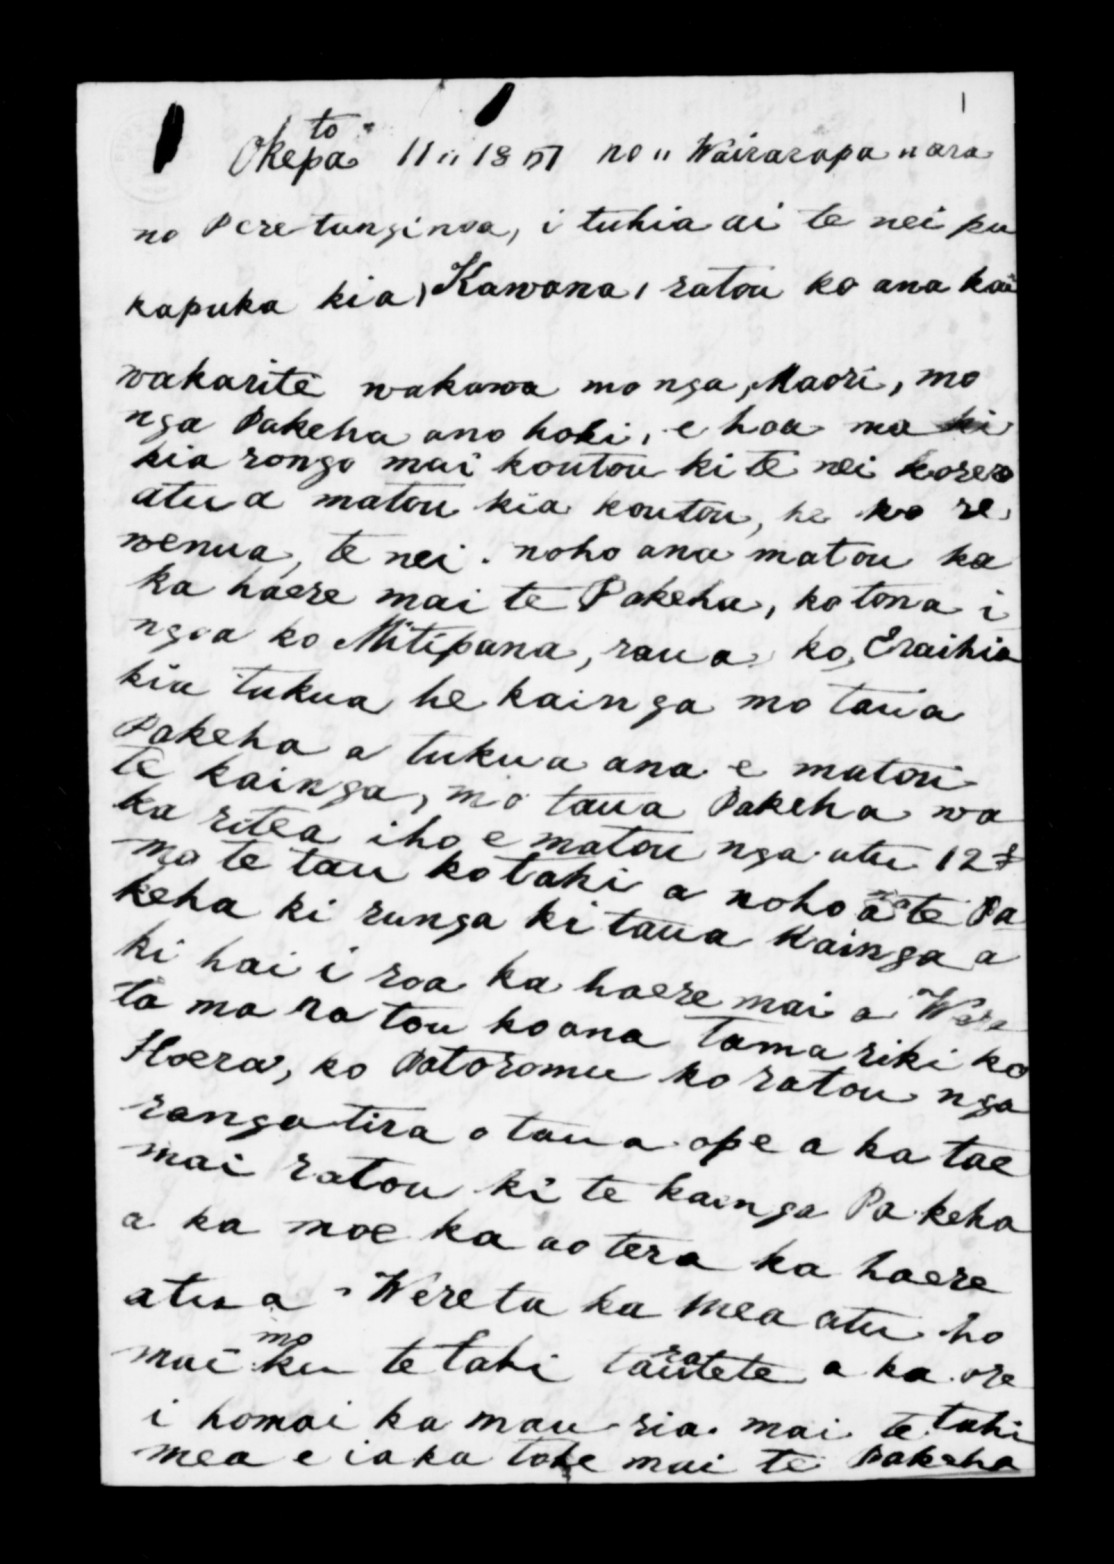 1
Oketopa 11 " 18 51 no " Wairarapa " ara
no Pere tunginoa, i tuhia ai te nei pu
kapuka kia, Kawana, ratou ko ana kai
wakarite wakawa mo nga, Maori, mo
nga Pakeha ano hoki, e hoa ma ki
kia rongo mai koutou ki te nei korero
atu a matou kia koutou, he ko re
wenua, te nei. noho ana matou ka
ka haere mai te Pakeha, ko tona i
ngoa ko Mitipana, raua ko, Eraihia
kia tukua he kainga mo taua
Pakeha a tukua ana e matou
te kainga, mo taua Pakeha wa
ka ritea iho e matou nga utu 12 £
mo te tau kotahi a noho ana te Pa
keha ki runga ki taua Kainga a
ki hai i roa ka haere mai a Were
ta ma ra tou ko ana tama riki ko
Hoera, ko Patoromu ko ratou nga
ranga tira o taua ope a ka tae
mai ratou ki te kainga Pakeha
a ka moe ka ao tera ka haere
atu a Wereta ka mea atu ho
mai mo ku te tahi tautete a ka ore
i homai ka mau ria mai te tahi
mea e ia ka tohe mai te Pakeha